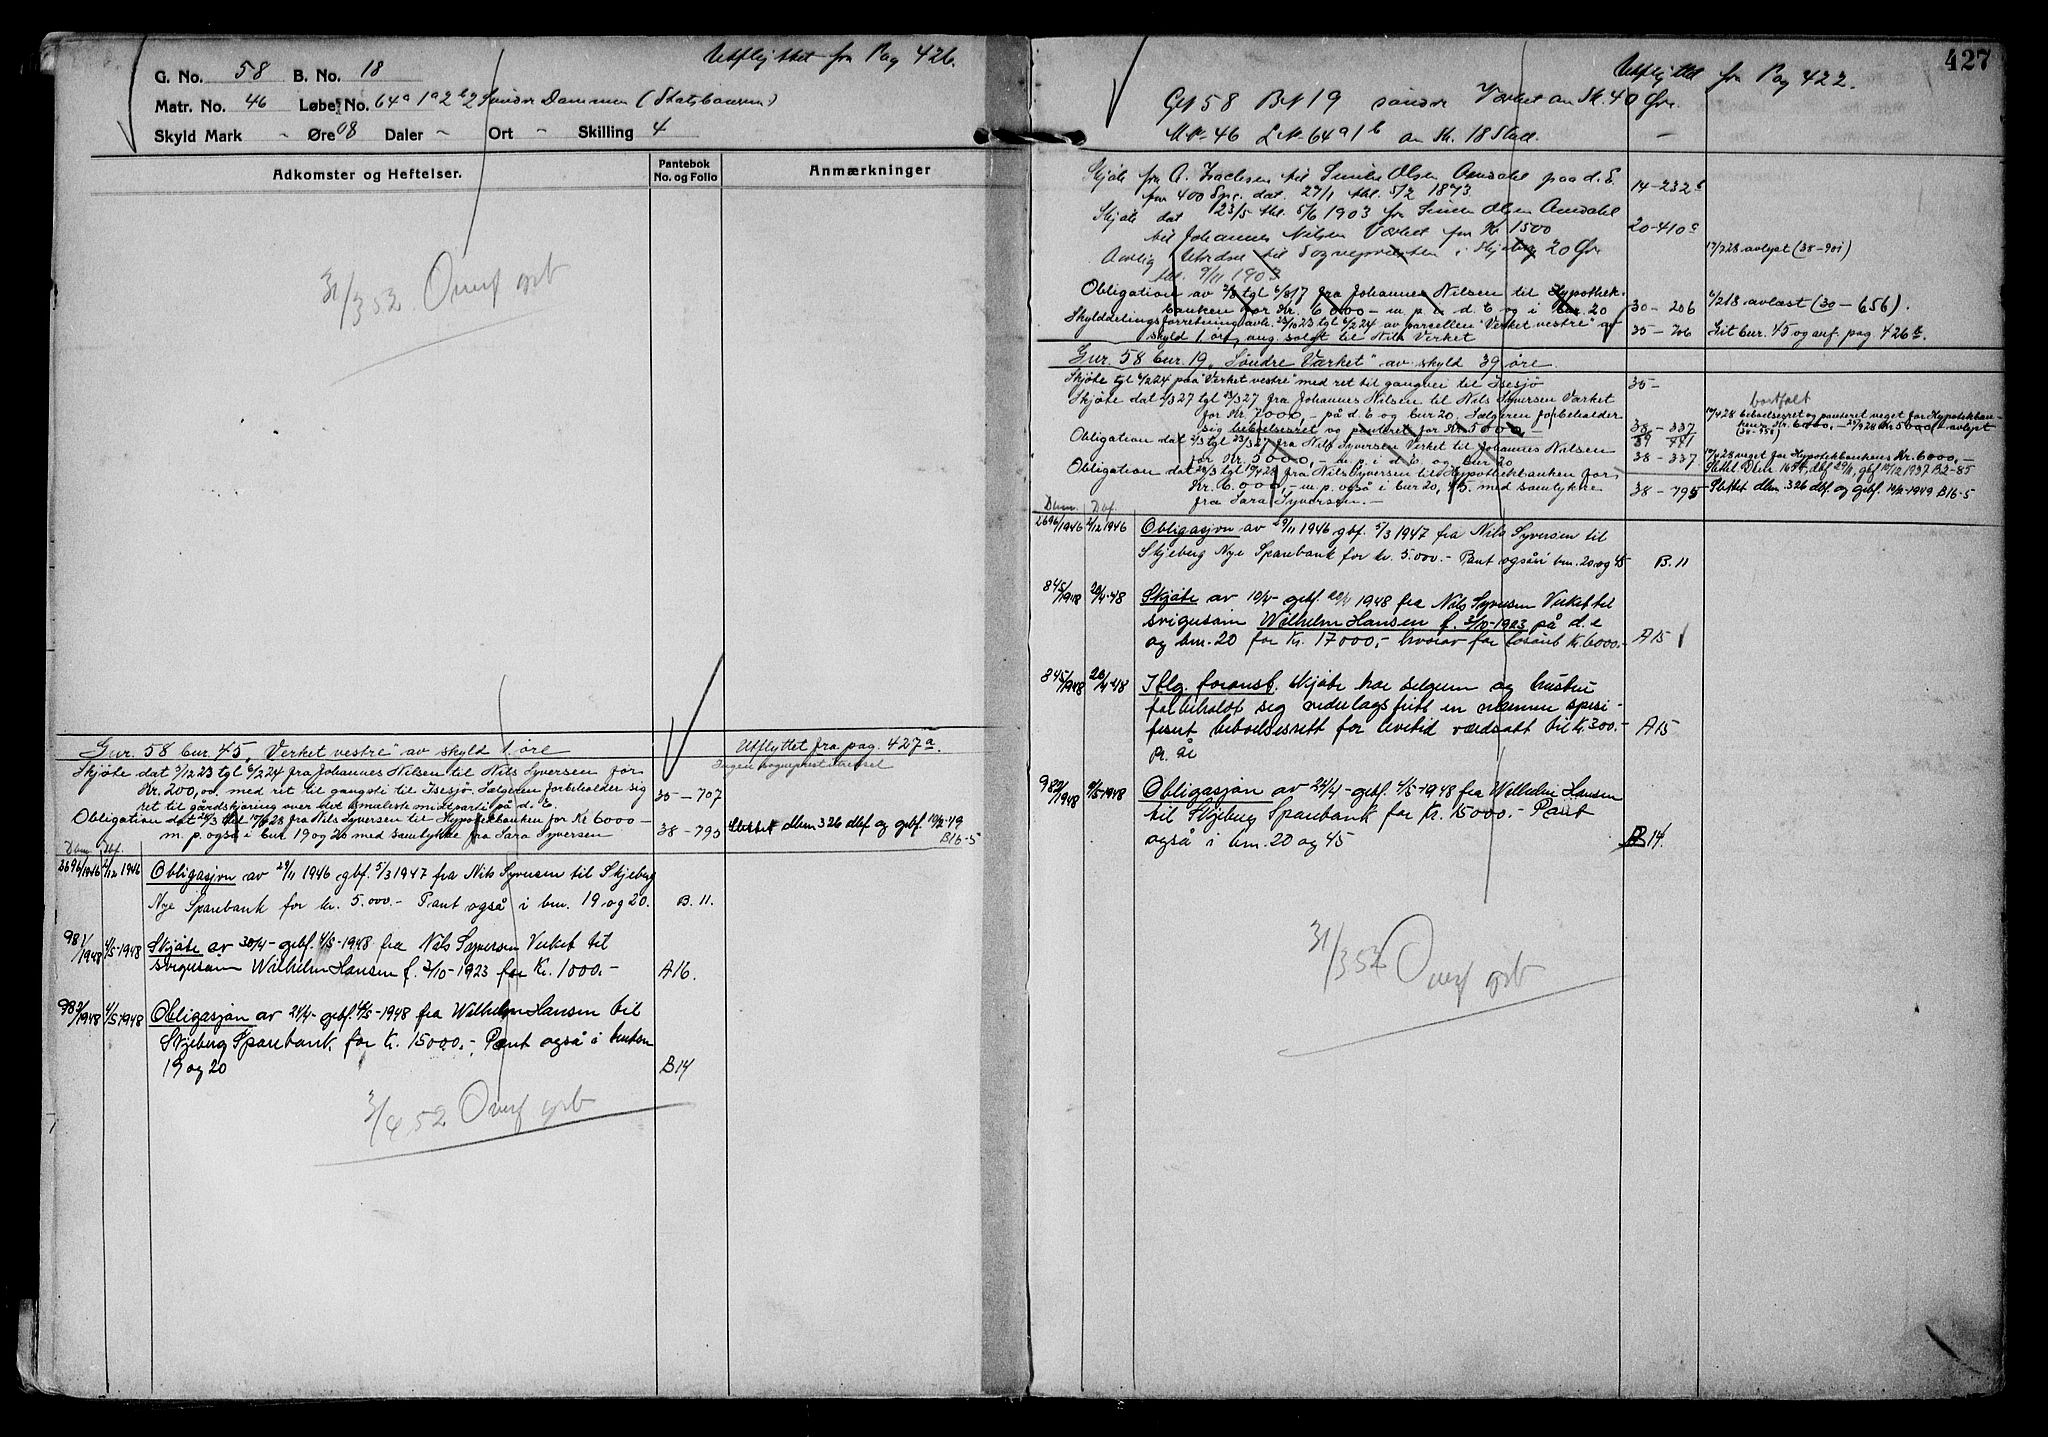 Utflyttet fra Pag 426.
G. No. 58 B. No. 18
Matr. No. 46 Løbe No. 64a 1a 2b2 Søndre Dammen (Statsbanerne)
Skyld Mark - Øre 08 Daler - Ort - Skilling 4
Adkomster og Heftelser.
Pantebok No. og Folio
Anmærkninger
31/3 52 Overf grb
Gnr. 58 bnr. 45 "Verket vestre" av skyld 1 øre
Utflyttet fra pag. 427a.
Skjøte dat 5/12 23 tgl 6/2 24 fra Johannes Nilsen til Nils Syversen for
Kr. 200,00. med ret til gangsti til Isesjø. Sælgeren forbeholder sig
35 - 707
ret til gårdskjøring over det smaleste midtparti på d. E.
Obligation dat 24/3 tgl 19/4 28 fra Nils Syversen til Hypotekbanken for Kr 6000 -
m. p. også i bnr. 19 og 20 med samtykke fra Sara Syversen
38 - 795
Slettet dbm 326 dbf og gebf. 10/2-49
B16-5
Dbnr. Dbf.
2696/1946 2/12 1946 Obligasjon av 29/11 1946 gbf. 5/3 1947 fra Nils Syversen til Skjeberg
Nye Sparebank for kr. 5.000.- Pant også i bnr. 19 og 20. B. 11.
981/1948 4/5-1948 Skjøte av 30/4- gebf. 4/5-1948 fra Nils Syversen Verket til
svigersønn Wilhelm Hansen f. 3/10-1923 for Kr. 1000.- A16.
982/1948 4/5-1948 Obligasjon av 24/4- gebf. 4/5-1948 fra Wilhelm Hansen til
Skjeberg Sparebank for Kr. 15000.-, Pant også i bruksnr
19 og 20 B14
3/4 52 Overf grb
427
Utflyttet fra Pag 422.
GN 58 BN 19 søndre Værket av Sk. 40 Øre.
MN- 46 LN- 64a 1b av Sk. 18 Skill. -
Skjøte fra A. Isachsen til Simen Olsen Amdahl paa d. E.
for 400 Spr. dat. 27/1 thl. 5/2 1873 14-232b
Skjøte dat 23/5 thl. 5/6 1903 fra Simen Olsen Amdahl
til Johannes Nilsen Værket for Kr 1500 20-410a
Aarlig til Sognepresten i Skjeberg 20 Øre
17/2 28 avlyst (38-901)
thl. 9/11 1903
Obligation av 2/8 tgl 6/8 17 fra Johannes Nilsen til Hypothek-
banken for Kr. 6000 - m. p. i d. E og i bnr. 20 30 - 206 6/2 18 avlæst (30-656).
Skylddelingsforretning avh. 25/10 23 tgl 6/2 24 av parcellen "Verket vestre" av
skyld 1 øre, ang. solgt til Nils Verket 35 - 706 Git bnr. 45 og ovf. pag. 426b.
Gnr. 58 bnr. 19 "Søndre Værket" av skyld 39 øre.
Skjøte tgl 6/2 24 paa "Verket vestre" med ret til gangvei til Isesjø 35-
Skjøte dat 2/3 27 tgl 23/3 27 fra Johannes Nilsen til Nils Syversen Værket
bortfalt
for Kr. 7000,- på d. E og bnr 20. Sælgeren forbeholder
sig beboelsesret og panteret for Kr 5000 - 38 - 337
Obligation dat 2/3 tgl 23/3 27 fra Nils Syversen Verket til Johannes Nilsen
for Kr. 5000,- m. p. i d. E og bnr 20 38 - 337 19/4 28 veget for Hypotekbankens Kr. 6000.-
Obligation dat 24/3 tgl 19/4 28 fra Nils Syversen til Hypothekbanken for
Kr. 6.000,- m. p. også i bnr 20, 45. med samtykke 38 - 795 Slettet dbnr 326 dbf. og gebf. 10/2-1949 B16-5
fra Sara Syversen.-
Dbnr. Dbf.
2696/1946 2/12 1946 Obligasjon av 29/11 1946 gbf. 5/3 1947 fra Nils Syversen til
Skjeberg Nye Sparebank for kr. 5.000.- Pant også i bnr. 20 og 45 B. 11
845/1948 20/4-48 Skjøte av 10/4- gebf. 20/4 1948 fra Nils Syversen Verket til
svigersønn Wilhelm Hansen f. 3/10-1923 på d. e
og bnr. 20 for Kr. 17000,- hvorav for løsøre Kr. 6000.- A15
845/1948 20/4-48 Iflg. foranst. skjøte har selgeren og hustru
forbeholdt sig vederlagsfritt en nærmere spesi-
fisert beboelsesrett for livstid verdsatt til Kr 300.- A15
pr. år
982/1948 4/5-1948 Obligasjon av 24/4- gebf. 4/5-1948 fra Wilhelm Hansen
til Skjeberg Sparebank for Kr. 15000.- Pant
også i bnr. 20 og 45 B14
31/3 52 Overf grb